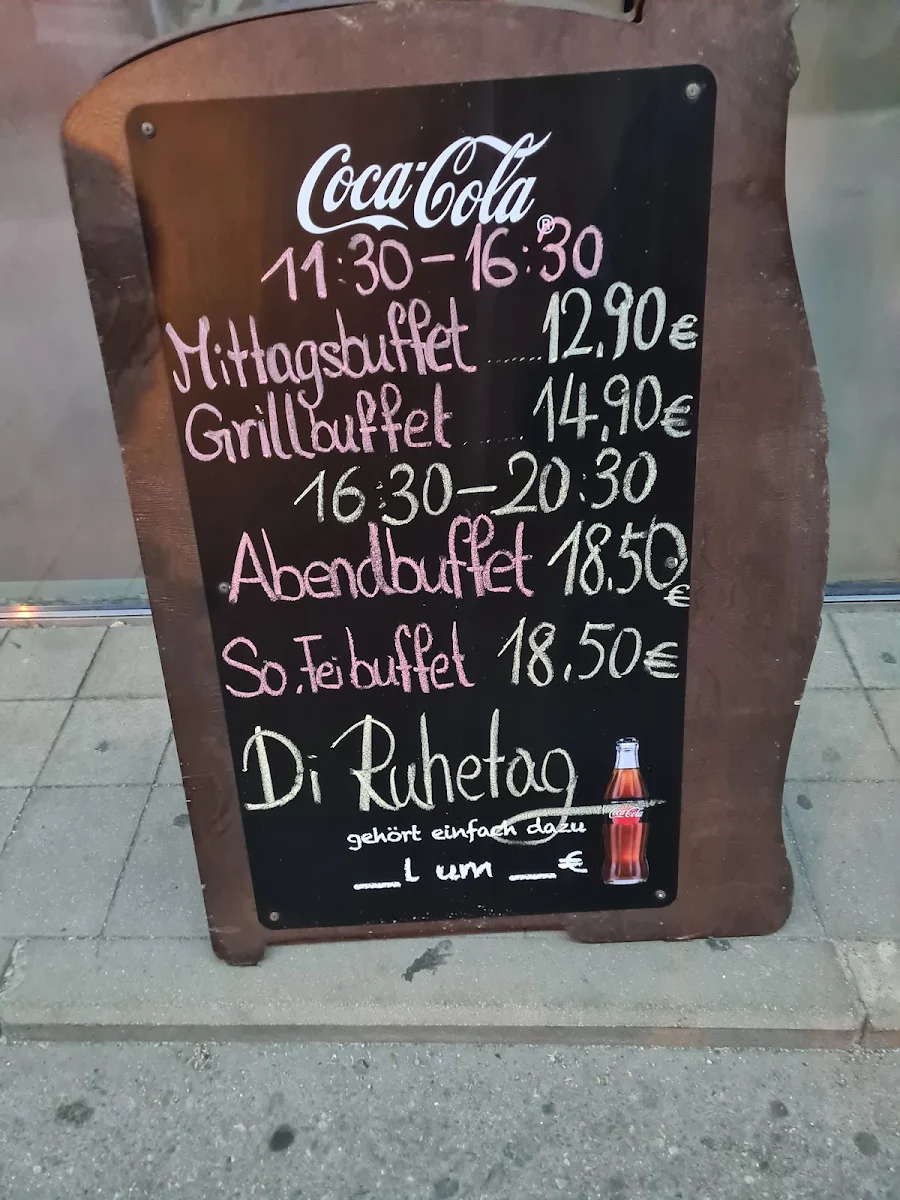 Coca-Cola®
11:30-16:30
Mittagsbuffet ........ 12,90€
Grillbuffet ...... 14,90€
16:30-20:30
Abendbuffet 18.50€
So.Feibuffet 18.50€
Di Ruhetag
gehört einfach dazu
Coca-Cola
__l um __€